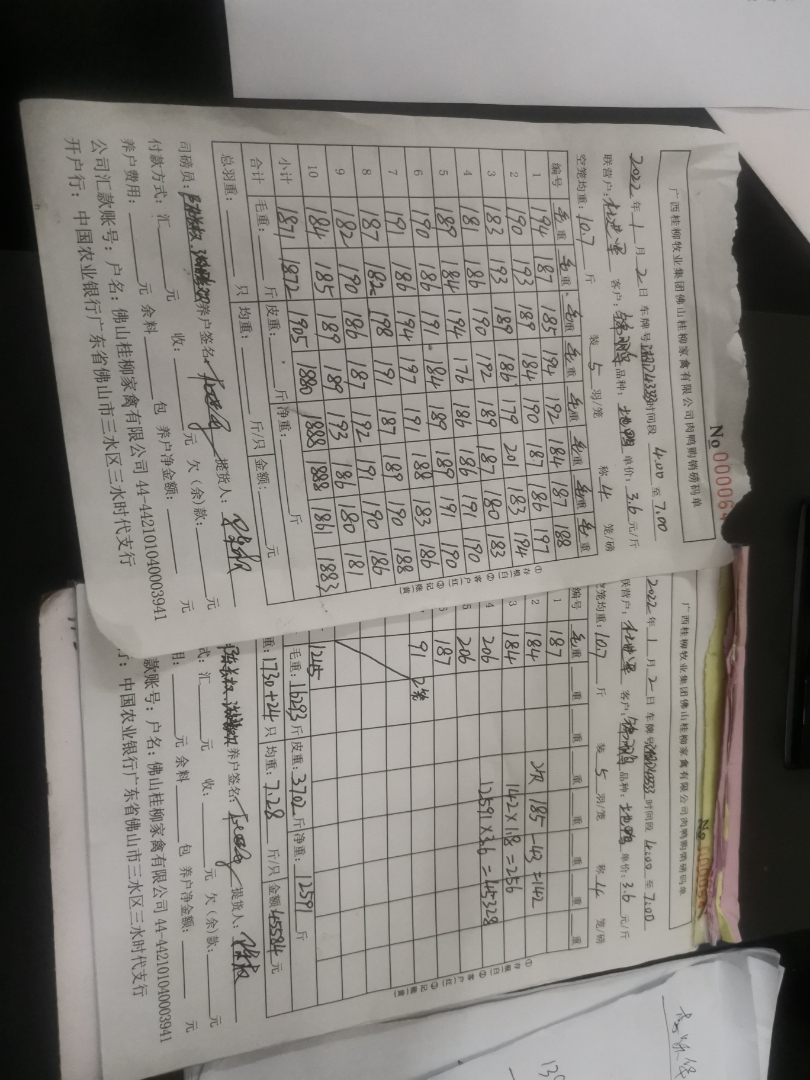 广西桂柳牧业集团佛山桂柳家禽有限公司肉鸭购销磅码单
No 000064
2022 年 1 月 2 日 车牌号 时间段 4:00 至 7:00
联营户: 客户: 品种: 土鸭 单价: 3.6 元/斤
空笼均重: 10.7 斤 装 5 羽/笼 称 4 笼/磅
编号 毛重 毛重 毛重 毛重 毛重 毛重 毛重 毛重
1 194 187 185 194 192 184 187 188
2 190 193 189 184 190 187 186 197
3 183 193 189 186 179 201 183 194
4 181 186 190 192 189 187 180 183
5 189 184 194 176 186 186 191 190
6 190 186 191 184 189 189 191 190
7 191 186 194 197 191 188 183 186
8 187 182 198 191 187 189 190 188
9 182 190 186 187 192 191 190 186
10 184 185 189 189 193 186 180 181
小计 1871 1872 1905 1880 1888 1888 1861 1883
合计 毛重: 斤 皮重: 斤 净重: 斤
总羽重: 只 均重: 斤/只 金额: 元
司磅员: 养户签名: 提货人:
付款方式: 汇 元 收: 元 欠(余)款: 元
养户费用: 元 余料 包 养户净金额: 元
公司汇款账号: 户名: 佛山桂柳家禽有限公司 44-442101040003941
开户行: 中国农业银行广东省佛山市三水区三水时代支行
①存根(白) ②客户(红) ③记账(黄)
广西桂柳牧业集团佛山桂柳家禽有限公司肉鸭购销磅码单
No
2022 年 1 月 2 日 车牌号 时间段 4:00 至 7:00
联营户: 客户: 品种: 土鸭 单价: 3.6 元/斤
笼均重: 10.7 斤 装 5 羽/笼 称 4 笼/磅
编号 毛重 重 重 重 重 重 重 重
1 187
2 184 2次 185-43=142
3 184 142×1.8=256
4 206 12591×3.6=45328
5 206
187
91 2笼
1245
毛重: 16293 斤 皮重: 3702 斤 净重: 12591 斤
重: 1730+24 只 均重: 7.28 斤/只 金额 45584 元
养户签名: 提货人:
式: 汇 元 收: 元 欠(余)款: 元
用: 元 余料 包 养户净金额: 元
款账号: 户名: 佛山桂柳家禽有限公司 44-442101040003941
: 中国农业银行广东省佛山市三水区三水时代支行
①存根(白) ②客户(红) ③记账(黄)